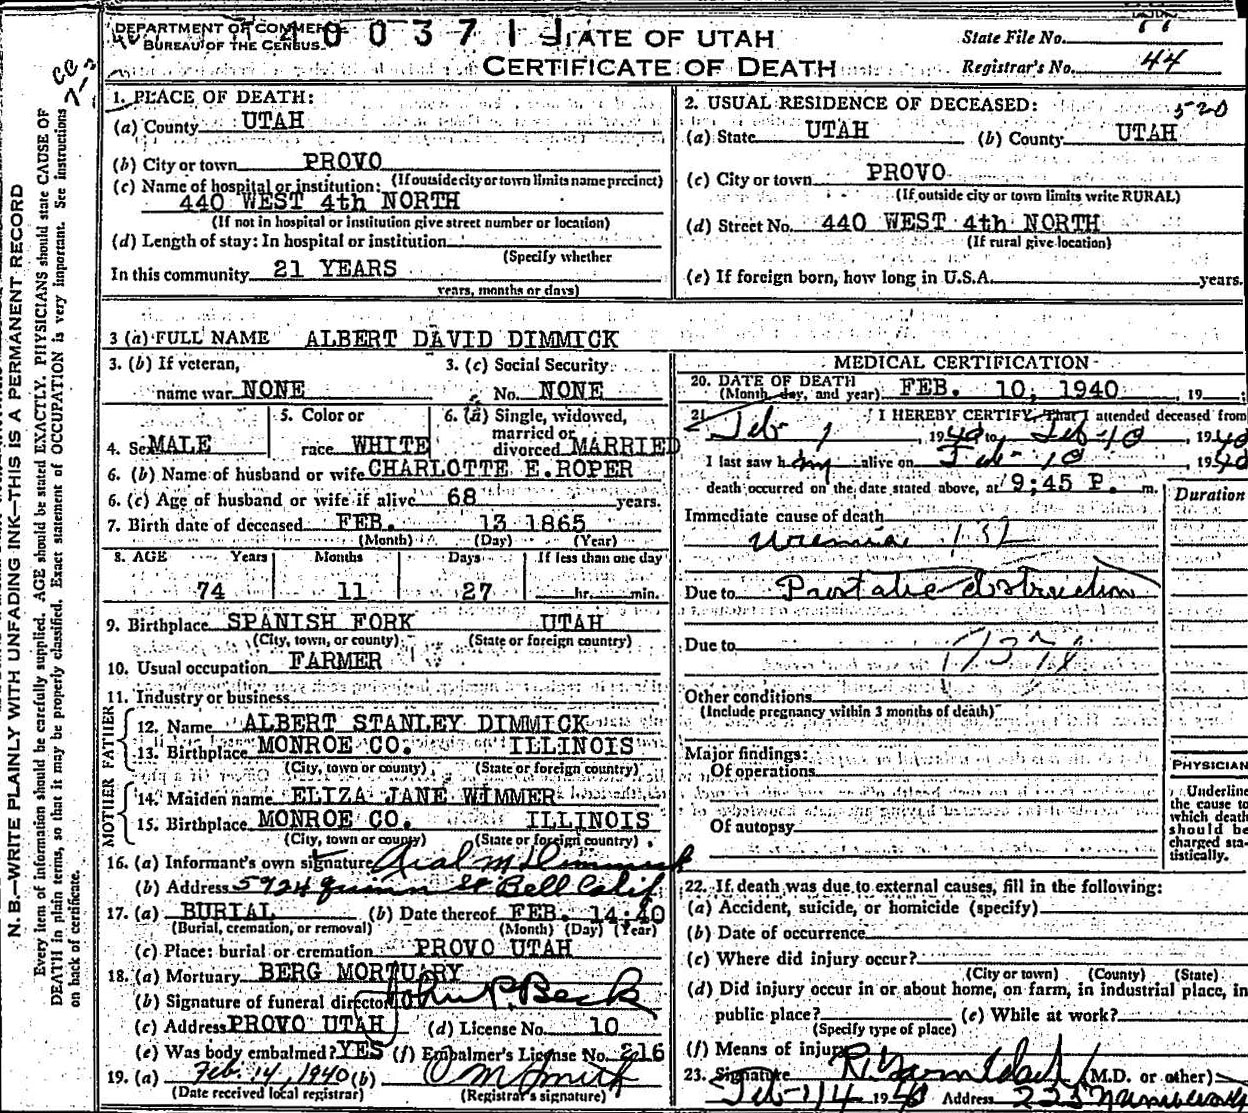 DEPARTMENT OF COMMERCE
BUREAU OF THE CENSUS
400371
STATE OF UTAH
CERTIFICATE OF DEATH
State File No.
Registrar's No. 44
N. B.—WRITE PLAINLY WITH UNFADING INK—THIS IS A PERMANENT RECORD
Every item of information should be carefully supplied. AGE should be stated EXACTLY. PHYSICIANS should state CAUSE OF
DEATH in plain terms, so that it may be properly classified. Exact statement of OCCUPATION is very important. See instructions
on back of certificate.
1. PLACE OF DEATH:
(a) County UTAH
(b) City or town PROVO
(If outside city or town limits name precinct)
(c) Name of hospital or institution:
440 WEST 4th NORTH
(If not in hospital or institution give street number or location)
(d) Length of stay: In hospital or institution
(Specify whether
In this community 21 YEARS
years, months or days)
2. USUAL RESIDENCE OF DECEASED: 520
(a) State UTAH (b) County UTAH
(c) City or town PROVO
(If outside city or town limits write RURAL)
(d) Street No. 440 WEST 4th NORTH
(If rural give location)
(e) If foreign born, how long in U.S.A. years.
3 (a) FULL NAME ALBERT DAVID DIMMICK
3. (b) If veteran,
name war NONE
3. (c) Social Security
No. NONE
4. Sex MALE
5. Color or
race WHITE
6. (a) Single, widowed,
married or
divorced MARRIED
6. (b) Name of husband or wife CHARLOTTE E. ROPER
6. (c) Age of husband or wife if alive 68 years.
7. Birth date of deceased FEB. 13 1865
(Month) (Day) (Year)
8. AGE Years Months Days If less than one day
74 11 27 hr. min.
9. Birthplace SPANISH FORK UTAH
(City, town, or county) (State or foreign country)
10. Usual occupation FARMER
11. Industry or business
FATHER
12. Name ALBERT STANLEY DIMMICK
13. Birthplace MONROE CO. ILLINOIS
(City, town or county) (State or foreign country)
MOTHER
14. Maiden name ELIZA JANE WIMMER
15. Birthplace MONROE CO. ILLINOIS
(City, town or county) (State or foreign country)
16. (a) Informant's own signature Arial M Dimmick
(b) Address 5924 Quinn St Bell Calif
17. (a) BURIAL (b) Date thereof FEB. 14:40
(Burial, cremation, or removal) (Month) (Day) (Year)
(c) Place: burial or cremation PROVO UTAH
18. (a) Mortuary BERG MORTUARY
(b) Signature of funeral director John P. Beck
(c) Address PROVO UTAH (d) License No. 10
(e) Was body embalmed? YES (f) Embalmer's License No. 216
19. (a) Feb. 14, 1940 (b) O M Smith
(Date received local registrar) (Registrar's signature)
MEDICAL CERTIFICATION
20. DATE OF DEATH
(Month, day, and year) FEB. 10, 1940, 19
21. I HEREBY CERTIFY, That I attended deceased from
Feb 1, 1940 to Feb 10, 1940
I last saw him alive on Feb 10, 1940
death occurred on the date stated above, at 9:45 P. m.
Duration
Immediate cause of death
Uremia 132
Due to Prostatic obstruction
Due to
137
Other conditions
(Include pregnancy within 3 months of death)
Major findings:
Of operations
Of autopsy
PHYSICIAN
Underline
the cause to
which death
should be
charged sta-
tistically.
22. If death was due to external causes, fill in the following:
(a) Accident, suicide, or homicide (specify)
(b) Date of occurrence
(c) Where did injury occur?
(City or town) (County) (State)
(d) Did injury occur in or about home, on farm, in industrial place, in
public place? (e) While at work?
(Specify type of place)
(f) Means of injury
23. Signature (M.D. or other)
Feb 14 1940 Address 235